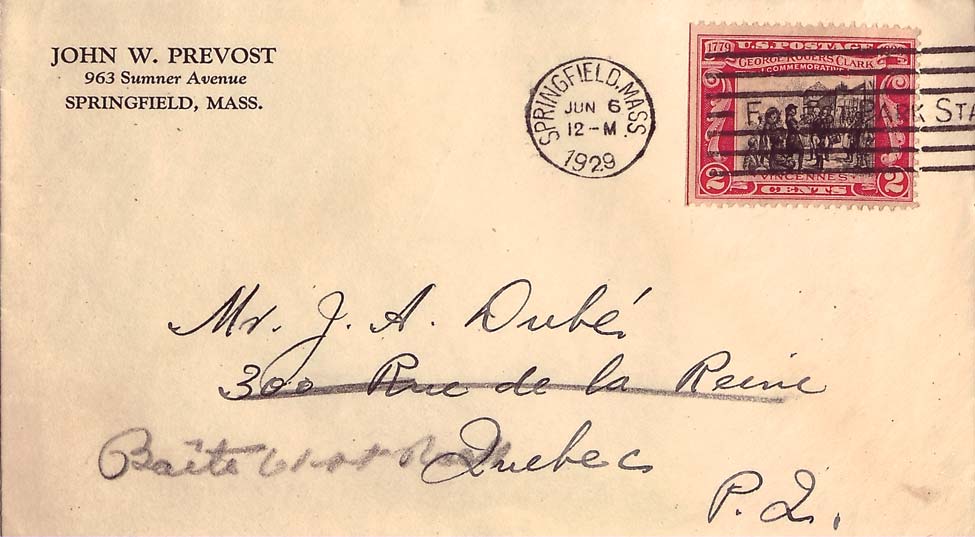 JOHN W. PREVOST
963 Sumner Avenue
SPRINGFIELD, MASS.
SPRINGFIELD, MASS.
JUN 6
12-M
1929
1779 U.S. POSTAGE 1929
GEORGE ROGERS CLARK
COMMEMORATIVE
PARK STA
VINCENNES
2 CENTS 2
Mr. J. A. Dubé,
300 Rue de la Reine
Quebec
P. Q.